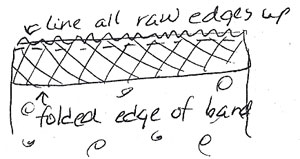 line all raw edges up
folded edge of band